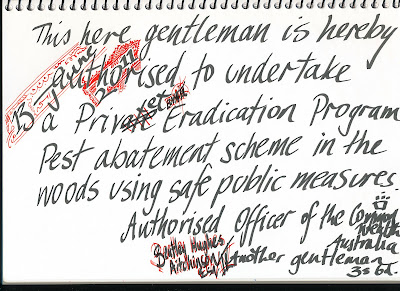 This here gentleman is hereby
authorised to undertake
a Private Eradication Program
Pest abatement scheme in the
woods using safe public measures.
Authorised Officer of the Common
wealth
Australia
Another gentleman
13 June
2011
Bentley Hughes